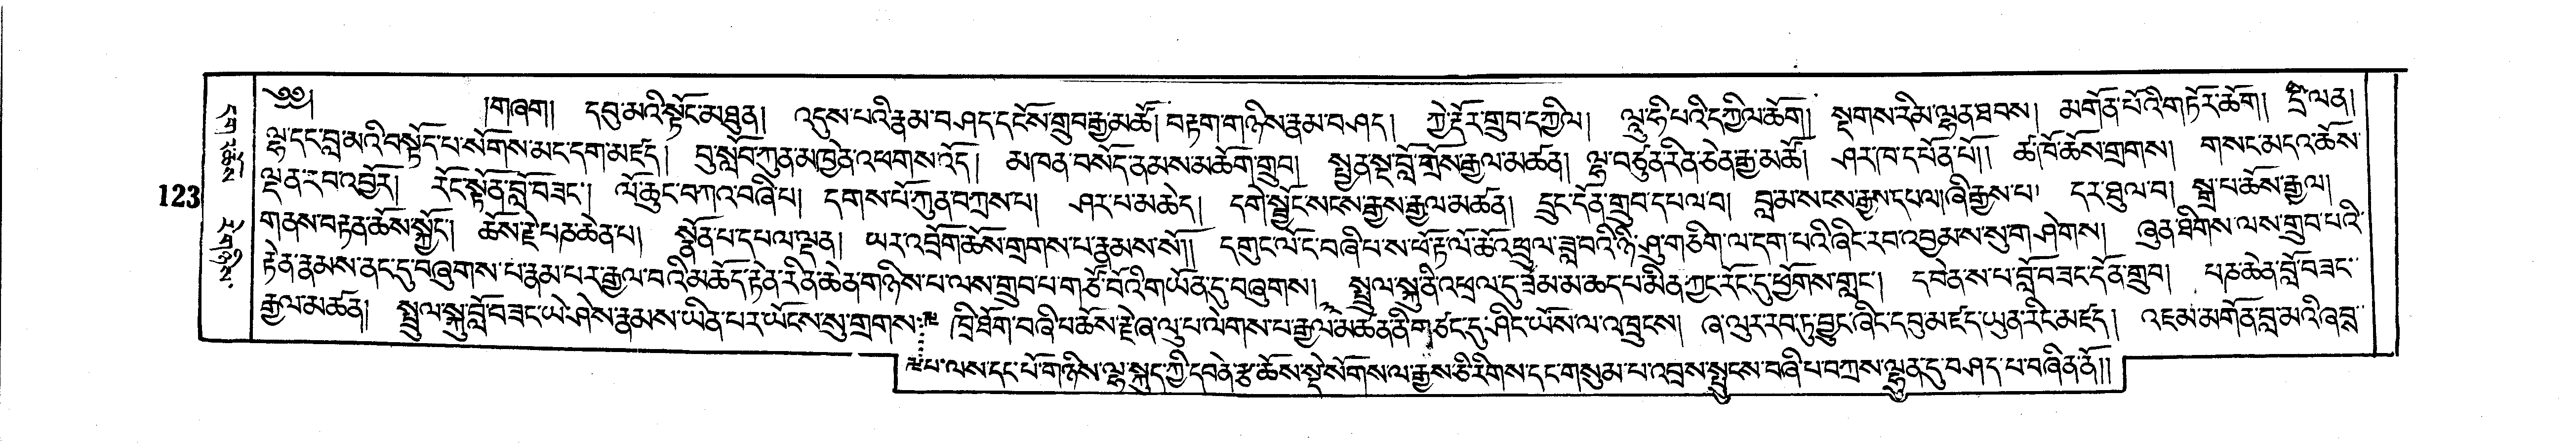 ༄༅། །གཞག། དབུ་མའི་སྟོང་མཐུན། འདུས་པའི་རྣམ་བཤད་དངོས་གྲུབ་རྒྱ་མཚོ། བརྟག་གཉིས་རྣམ་བཤད། ཀྱེ་རྡོར་གྲུབ་དཀྱིལ། ལཱུ་ཧི་པའི་དཀྱིལ་ཆོག། སྔགས་རིམ་ལྷན་ཐབས། མགོན་པོའི་གཏོར་ཆོག། དྲི་ལན།
ལྷ་དང་བླ་མའི་བསྟོད་པ་སོགས་མང་དག་མཛད། བུ་སློབ་ཀུན་མཁྱེན་འཕགས་འོད། མཁན་བསོད་ནམས་མཆོག་གྲུབ། སྤྱན་སྔ་བློ་གྲོས་རྒྱལ་མཚན། ལྷ་བཙུན་རིན་ཅེན་རྒྱ་མཚོ། ཤར་ཁ་དཔོན་པོ།། ཚ་བོ་ཆོས་གྲགས། གསང་མདའ་ཆོས་
ལྡན་རབ་འབྱོར། རོང་སྟོན་བློ་བཟང་། ལོ་ཆུང་བཀའ་བཞི་པ། དགས་པོ་ཀུན་བཀྲས་པ། ཤར་པ་མཆེད། དགེ་སྦྱོང་སངས་རྒྱས་རྒྱལ་མཚན། དྲུང་དོན་གྲུབ་དཔལ་བ། བླ་མ་སངས་རྒྱས་དཔལ། ཞི་རྒྱས་པ་ དར་ཐུལ་བ། སྒྲ་པ་ཆོས་རྒྱལ།
གནས་བརྟན་ཆོས་སྐྱོང་། ཆོས་རྗེ་པཎ་ཆེན་པ། སྣོན་པ་དཔལ་ལྡན། ཡར་འབྲོག་ཆོས་གྲགས་པ་རྣམས་སོ།། དགུང་ལོ་ང་བཞི་པ་ས་ཕོ་རྟ་ལོ་ཆོ་འཕྲུལ་ཟླ་བའི་ཉི་ཤུ་གཅིག་ལ་དག་པའི་ཞིང་རབ་འབྱམས་སུ་གཤེགས། ཞུན་ཐིགས་ལས་གྲུབ་པའི་
རྟེན་རྣམས་ནང་དུ་བཞུགས་པ་རྣམ་པར་རྒྱལ་བའི་མཆོད་རྟེན་རིན་ཆེན་གཉིས་པ་ལས་གྲུབ་པ་གཙོ་བོའི་གཡོན་དུ་བཞུགས། སྤྲུལ་སྐུ་ནི་འཕྲལ་དུ་ཟམ་མ་ཆད་པ་མིན་ཀྱང་རོང་དུ་ཕྱོགས་གླང་། དབེནས་པ་བློ་བཟང་དོན་གྲུབ། པཎ་ཆེན་བློ་བཟང་
རྒྱལ་མཚན། སྤྲུལ་སྐུ་བློ་བཟང་ཡེ་ཤེས་རྣམས་ཡིན་པར་ཡོངས་སུ་གྲགས་ ཁྲི་ཐོག་བཞི་པ་ཆོས་རྗེ་ཞ་ལུ་པ་ལེགས་པ་རྒྱལ་མཚན་ནི་གཙང་དུ་ཤིང་ཡོས་ལ་འཁྲུངས། ཞ་ལུར་རབ་ཏུ་བྱུང་ཞིང་དབུ་མཛད་ཡུན་རིང་མཛད། འཇམ་མགོན་བླ་མའི་ཞབས
པ་ལས་དང་པོ་གཉིས་ལྷ་སྐུད་ཀྱི་དབེན་རྩ་ཆོས་སྡེ་སོགས་ལ་རྒྱས་ཅི་རིགས་དང་གསུམ་པ་འབྲས་སྤུངས་བཞི་པ་བཀྲས་ལྷུན་དུ་བཤད་པ་བཞིན་ནོ།།
123